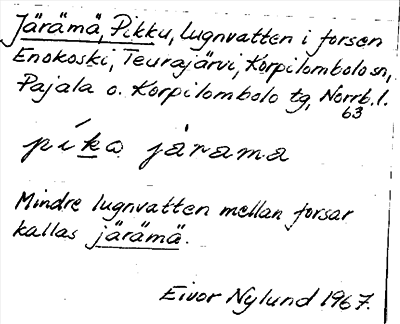 Järämä, Pikku, lugnvatten i forsen
Enokoski, Teurajärvi, Korpilombolo sn,
Pajala o. Korpilombolo tg, Norrb. l.
63
píko järama
Mindre lugnvatten mellan forsar
kallas järämä.
Eivor Nylund 1967.